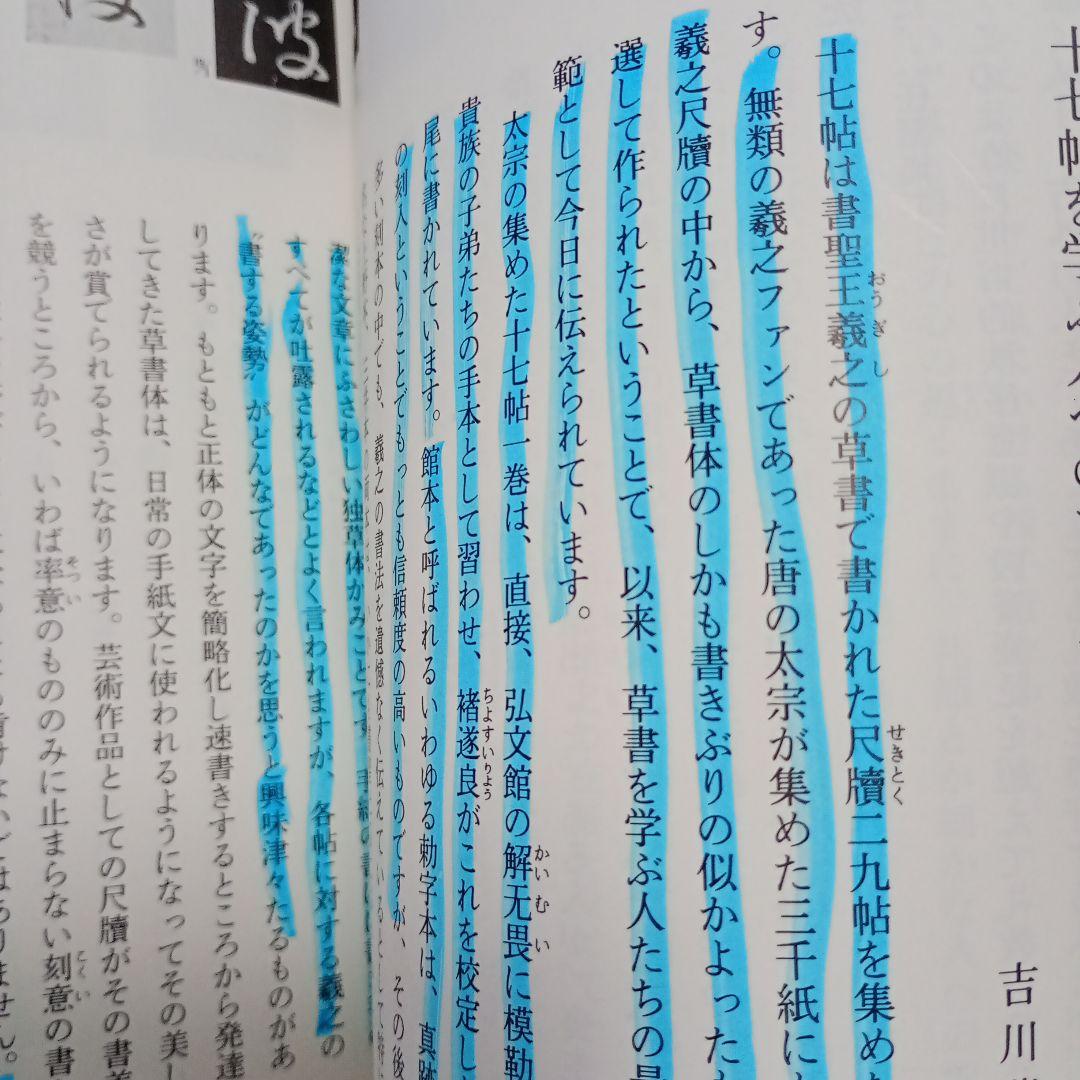 十七帖を学ぶ人への
吉川
十七帖は書聖王羲之の草書で書かれた尺牘二九帖を集め
おうぎし
せきとく
す。無類の羲之ファンであった唐の太宗が集めた三千紙に
羲之尺牘の中から、草書体のしかも書きぶりの似かよった
選して作られたということで、以来、草書を学ぶ人たちの
範として今日に伝えられています。
太宗の集めた十七帖一巻は、直接、弘文館の解无畏に模勒
かいむい
貴族の子弟たちの手本として習わせ、褚遂良がこれを校定し
ちよすいりよう
尾に書かれています。館本と呼ばれるいわゆる勅字本は、真跡
の刻入ということでもっとも信頼度の高いものですが、その後
多い刻本の中でも、羲之の書法を遺憾なく伝えているとして
潔な文章にふさわしい独草体かみことです
すべてが吐露されるなどとよく言われますが、各帖に対する羲之の
“書する姿勢”がどんなであったのかを思うと興味津々たるものがあ
ります。もともと正体の文字を簡略化し速書きするところから発達
してきた草書体は、日常の手紙文に使われるようになってその美し
さが賞てられるようになります。芸術作品としての尺牘がその書美
を競うところから、いわば率意のもののみに止まらない刻意の書
そつい
こくい
ありません。